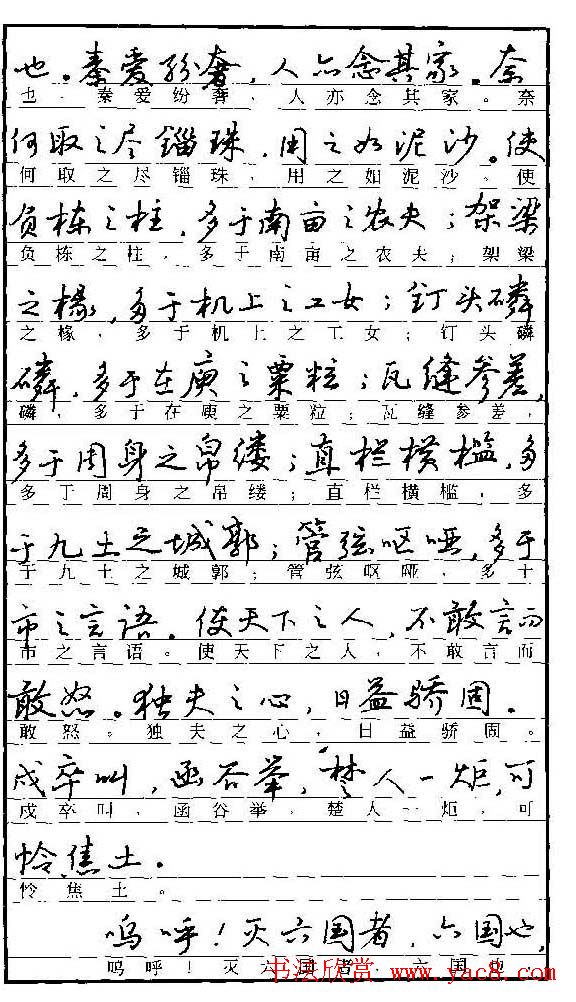 也。秦爱纷奢，人亦念其家。奈
也。秦爱纷奢，人亦念其家。奈
何取之尽锱珠，用之如泥沙。使
何取之尽锱珠，用之如泥沙。使
负栋之柱，多于南亩之农夫；架梁
负栋之柱，多于南亩之农夫；架梁
之椽，多于机上之工女；钉头磷
之椽，多于机上之工女；钉头磷
磷，多于在庾之粟粒；瓦缝参差，
磷，多于在庾之粟粒；瓦缝参差，
多于周身之帛缕；直栏横槛，多
多于周身之帛缕；直栏横槛，多
于九土之城郭；管弦呕哑，多于
于九土之城郭；管弦呕哑，多于
市之言语。使天下之人，不敢言而
市之言语。使天下之人，不敢言而
敢怒。独夫之心，日益骄固。
敢怒。独夫之心，日益骄固。
戍卒叫，函谷举，楚人一炬，可
戍卒叫，函谷举，楚人一炬，可
怜焦土。
怜焦土。
呜呼！灭六国者，六国也，
呜呼！灭六国者，六国
书法欣赏 www.yac8.com